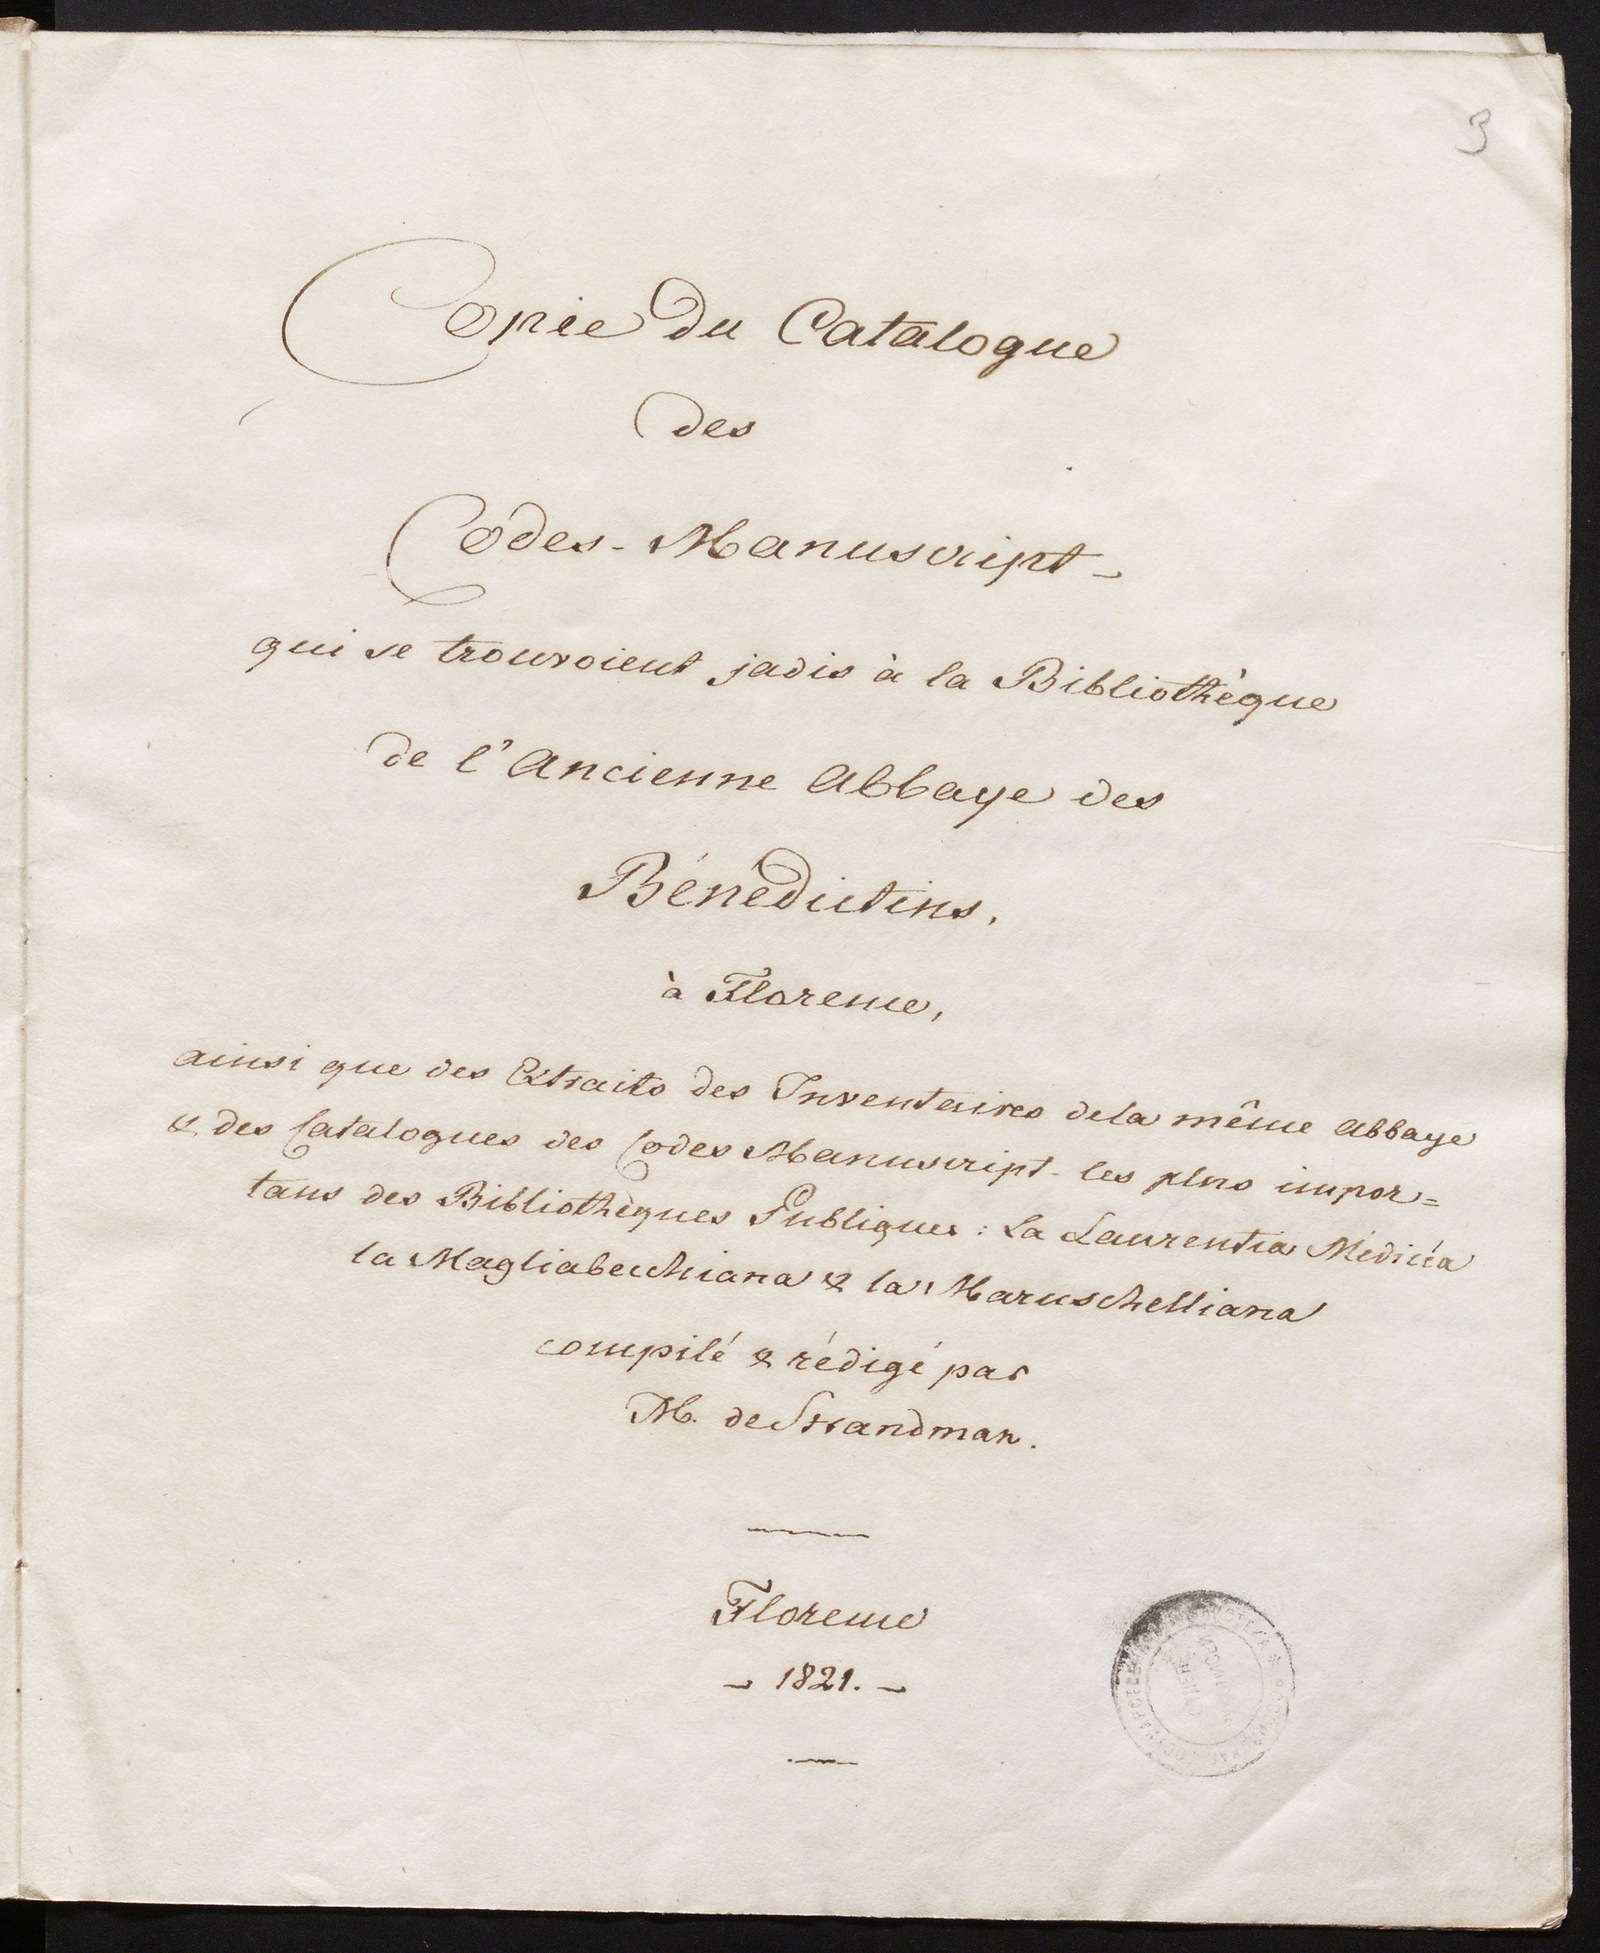 3
Copie du Catalogue
des
Codes-Manuscript-
qui se trouvoient jadis à la Bibliothèque
de l'Ancienne Abbaye des
Bénédictins,
à Florence,
ainsi que des Extraits des Inventaires dela même Abbaye
& des Catalogues des Codes Manuscript- les plus impor=
tans des Bibliothèques Publiques: La Laurentia Médicéa
la Magliabecchiana & la Maruschelliana
compilé & rédigé par
M. de Strandman.
Florence
- 1821. -